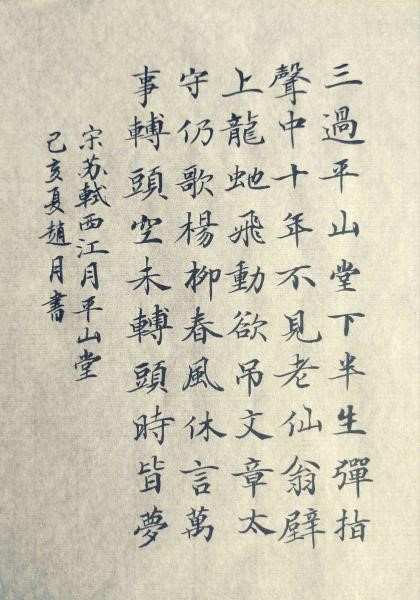 三過平山堂下半生彈指
聲中十年不見老仙翁壁
上龍虵飛動欲吊文章太
守仍歌楊柳春風休言萬
事轉頭空未轉頭時皆夢
宋苏軾西江月平山堂
己亥夏趙月書